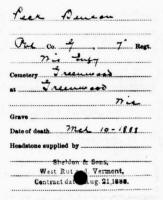 Peck Benson
Pvt Co. G, 7" Regt.
Wis Infy
Cemetery Greenwood
at Greenwood
Wis
Grave
Date of death Mch 10-1888
Headstone supplied by
Sheldon & Sons,
West Rutland, Vermont,
Contract dated Aug. 21, 1888.